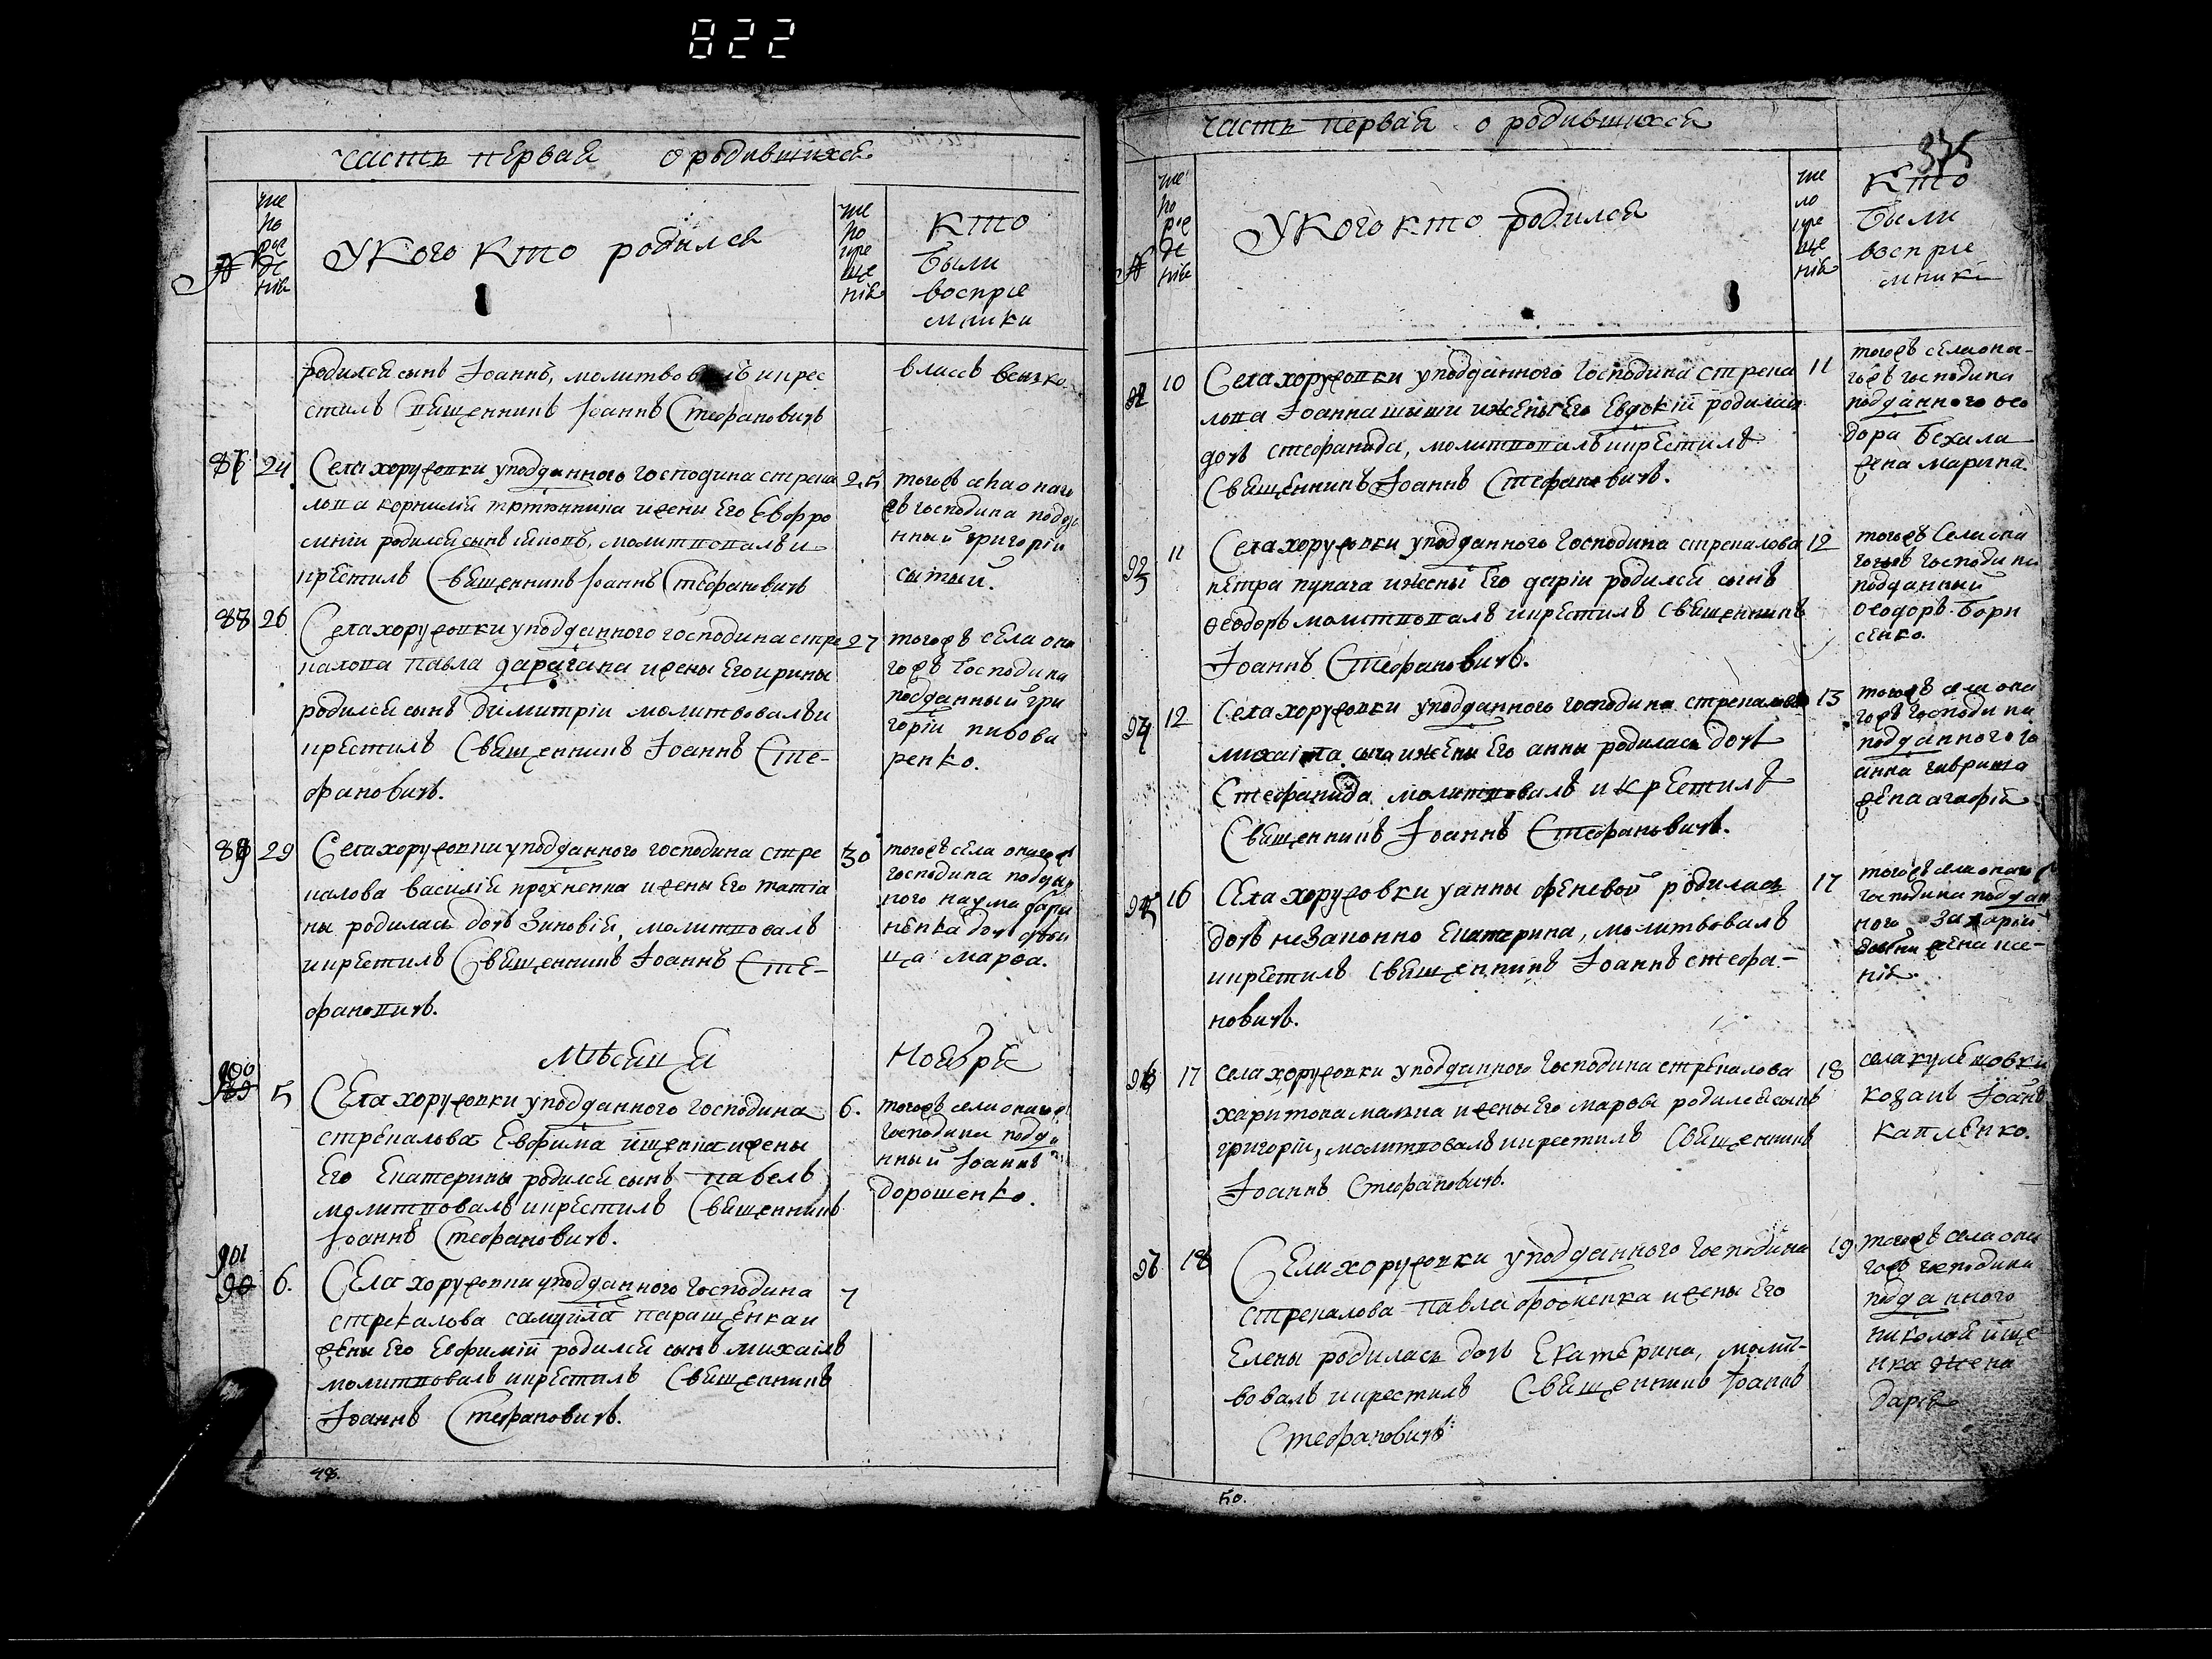 822
часть первая о родившихся
№
чис
ло
рож
де
нія
У кого кто родился
чис
ло
кре
ще
нія
Кто
были
воспрiе
мники
родился сынъ Іоаннъ, молитвов лъ и крес
стилъ Священникъ Іоаннъ Стефановичъ
власъ
24
Села хоружовки у подданного господина стрека
лова корнилія жены Его Евфро
синіи родился сынъ, молитвовалъ и
крестилъ Священникъ Іоаннъ Стефановичъ
25
тогожъ села оного
жъ господина подда
нный григорій
сытый.
88
26
Села хоружовки у подданного господина стре
калова павла дарагана жены Его ирины
родился сынъ димитрій молитвовалъ и
крестилъ Священникъ Іоаннъ Сте-
фановичъ.
27
тогожъ села оно
гожъ господина
подданный гри
горій пивова
ренко.
89
29
Села хоружовки у подданного господина стре
калова василія прохненка жены Его татіа
ны родилась дочь Зиновія, молитвовалъ
и крестилъ Священникъ Іоаннъ Сте-
фановичъ.
30
тогожъ села оногожъ
господина поддан
ного наума
дочь
марѳа.
Мѣсяца Ноября
90
89
5
Села хоружовки у подданного господина
стрекалова Евфима ищенка жены
Его Екатерины родился сынъ павелъ
молитвовалъ и крестилъ Священникъ
Іоаннъ Стефановичъ.
6.
тогожъ села оногожъ
господина подда
нный Іоаннъ
дорошенко.
91
90
6.
Села хоружовки у подданного господина
стрекалова самуила паращенка и
жены Его Евфиміи родился сынъ михаилъ
молитвовалъ и крестилъ Священникъ
Іоаннъ Стефановичъ.
7
48.
часть первая о родившихся
375
№
чис
ло
рож
де
нія
У кого кто родился
чис
ло
кре
ще
нія
Кто
были
воспрiе
мники
92
10
Села хоружовки у подданного господина стрека
лова Іоанна шиши и жены Его Евдокіи родилась
дочь стефанида, молитвовалъ и крестилъ
Священникъ Іоаннъ Стефановичъ.
11
тогожъ села оно-
гожъ господина
подданного ѳео
дора бехала
жена марина.
93
11
Села хоружовки у подданного господина стрекалова
петра пугача и жены Его даріи родился сынъ
ѳеодоръ молитвовалъ и крестилъ священникъ
Іоаннъ Стефановичъ.
12
тогожъ села оно
гожъ господина
подданный
ѳеодоръ бори
сенко.
94
12
Села хоружовки у подданного господина стрекалова
михаила сыча и жены Его анны родилась дочь
Стефанида молитвовалъ и крестилъ
Священникъ Іоаннъ Стефановичъ.
13
тогожъ села оно
гожъ господина
подданного іо
анна гавриша
жена агафія
95
16
Села хоружовки у анны феневой родилась
дочь незаконно Екатерина, молитвовалъ
и крестилъ священникъ Іоаннъ стефа-
новичъ.
17
тогожъ села оногожъ
господина поддан
ного захарія
жена ксе-
нія.
96
17
села хоружовки у подданного господина стрекалова
харитона жены Его марѳы родился сынъ
григорій, молитвовалъ и крестилъ Священникъ
Іоаннъ Стефановичъ.
18
села кулешовки
козакъ Іоаннъ
капленко.
97
18
Села хоружовки у подданного господина
стрекалова павла фосненка жены Его
Елены родилась дочь Екатерина, молит-
вовалъ и крестилъ Священникъ Іоаннъ
Стефановичъ
19
тогожъ села оно
гожъ господина
подданного
николая ище
нка жена
дарія
50.